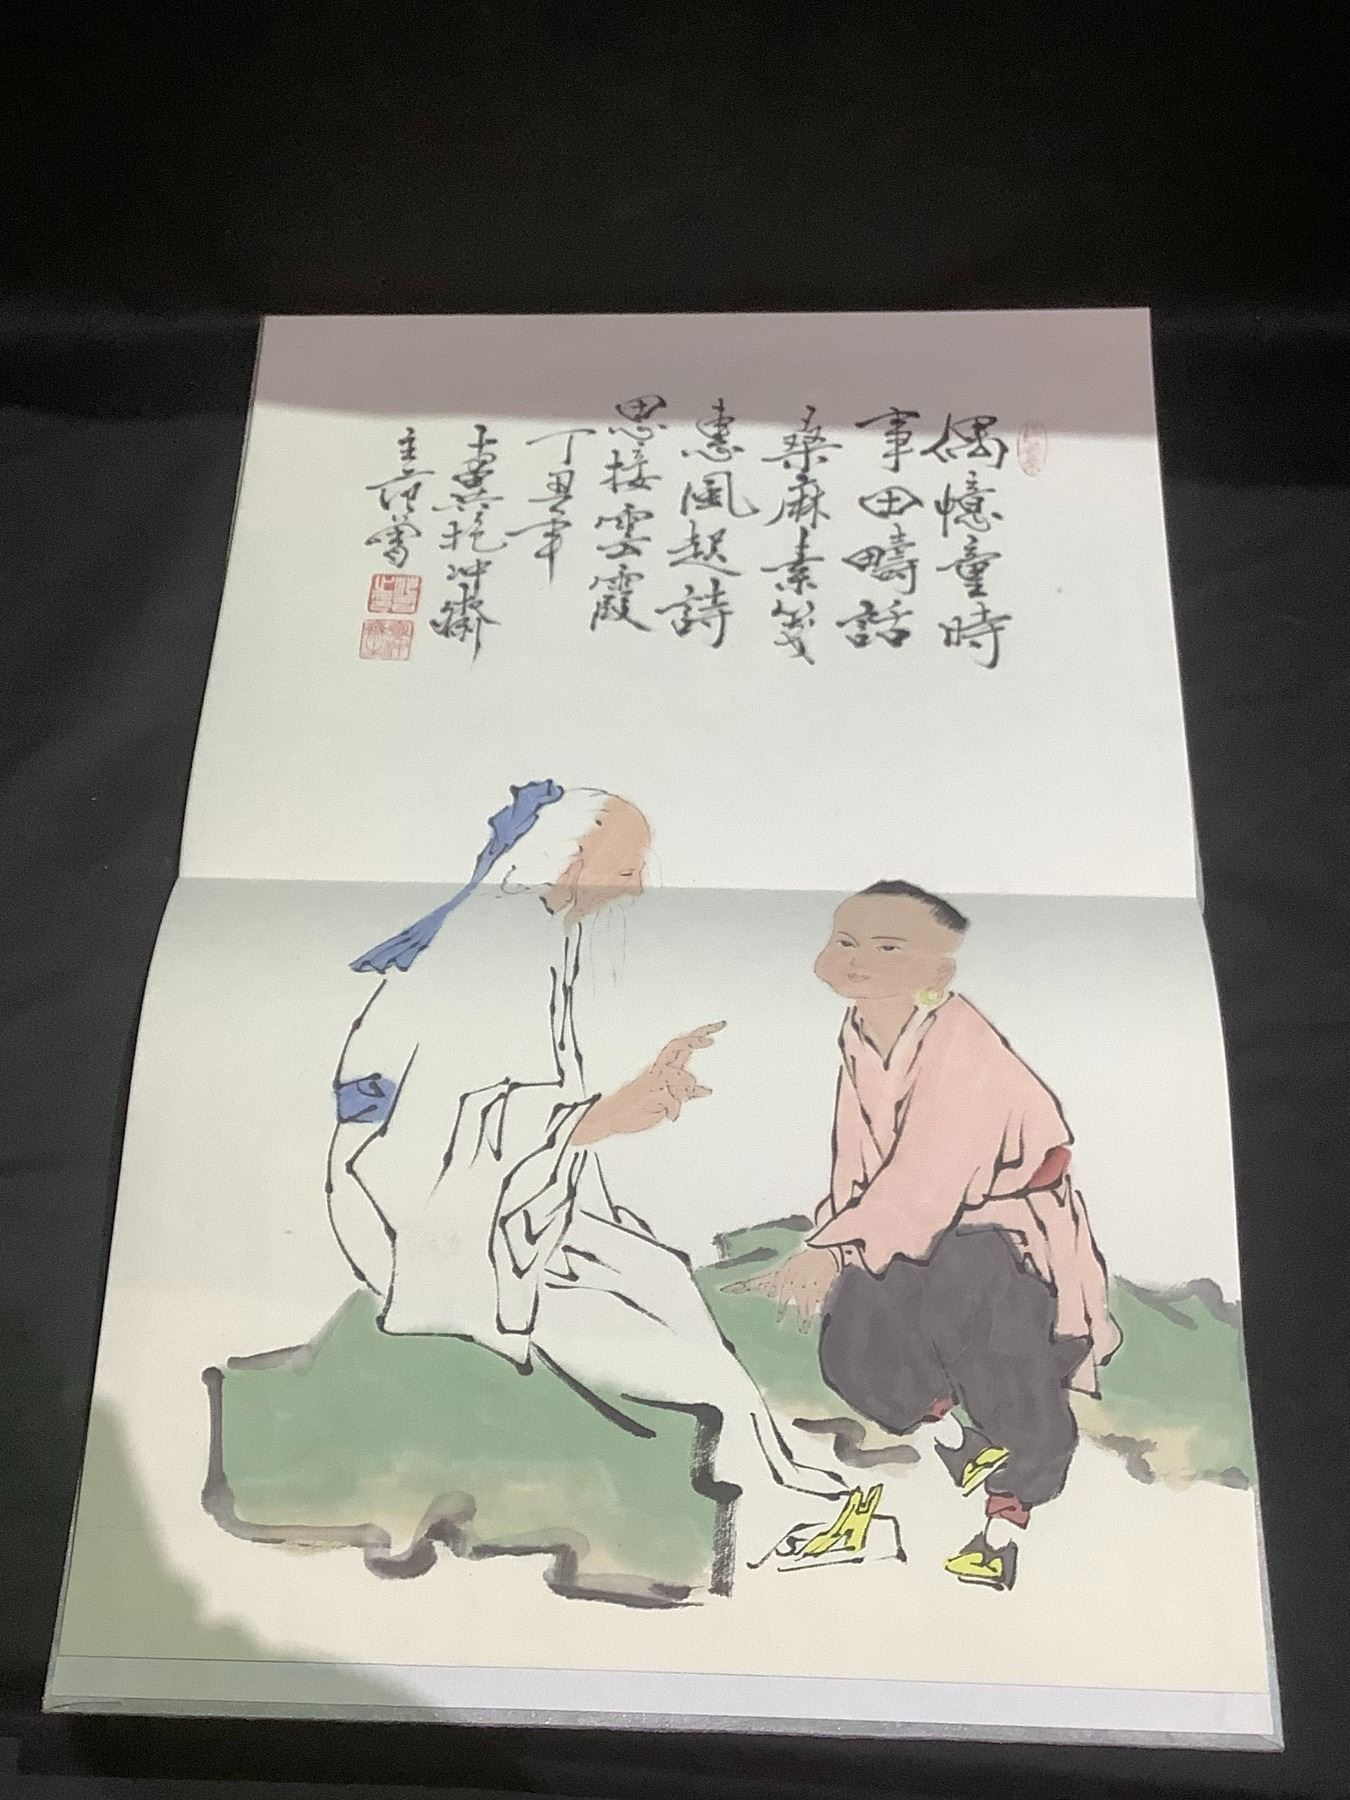 偶憶童時
事田疇話
桑麻素箋
惠風起詩
思接雲霞
丁丑年
十翼抱沖齋
主范曾